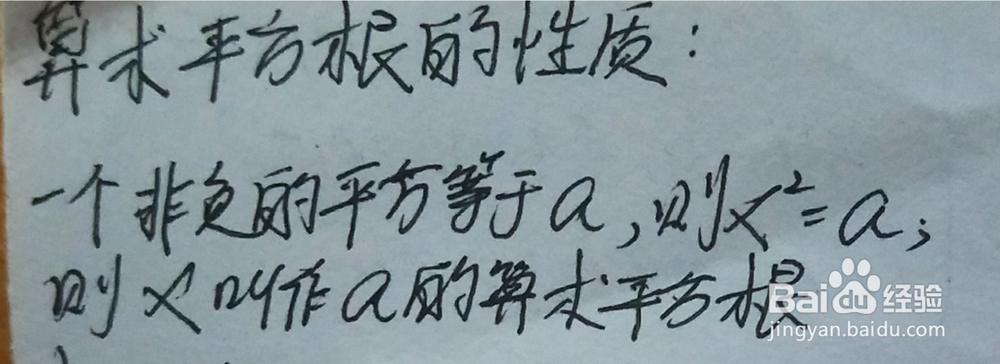 算术平方根的性质:
一个非负的平方等于a,则x²=a;
则x叫作a的算术平方根
Baidu经验
jingyan.baidu.com